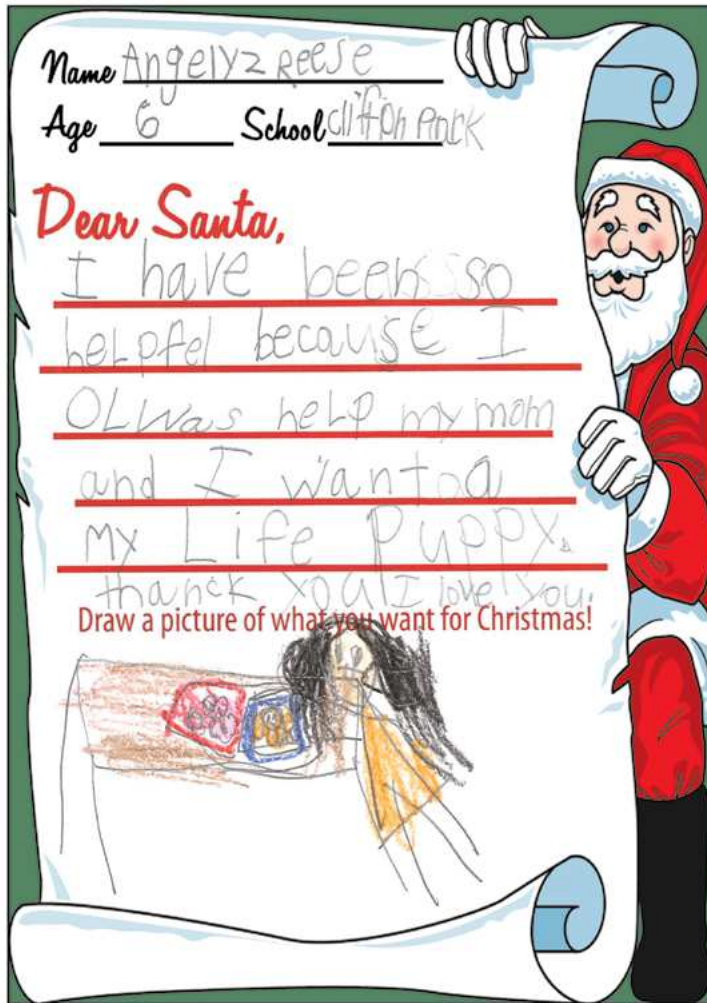 Name Angelyz Reese
Age 6 School Clifton Park
Dear Santa,
I have been so
helpfel because I
OLWas help my mom
and I want a
my Life Puppy.
thanck you I love you.
Draw a picture of what you want for Christmas!